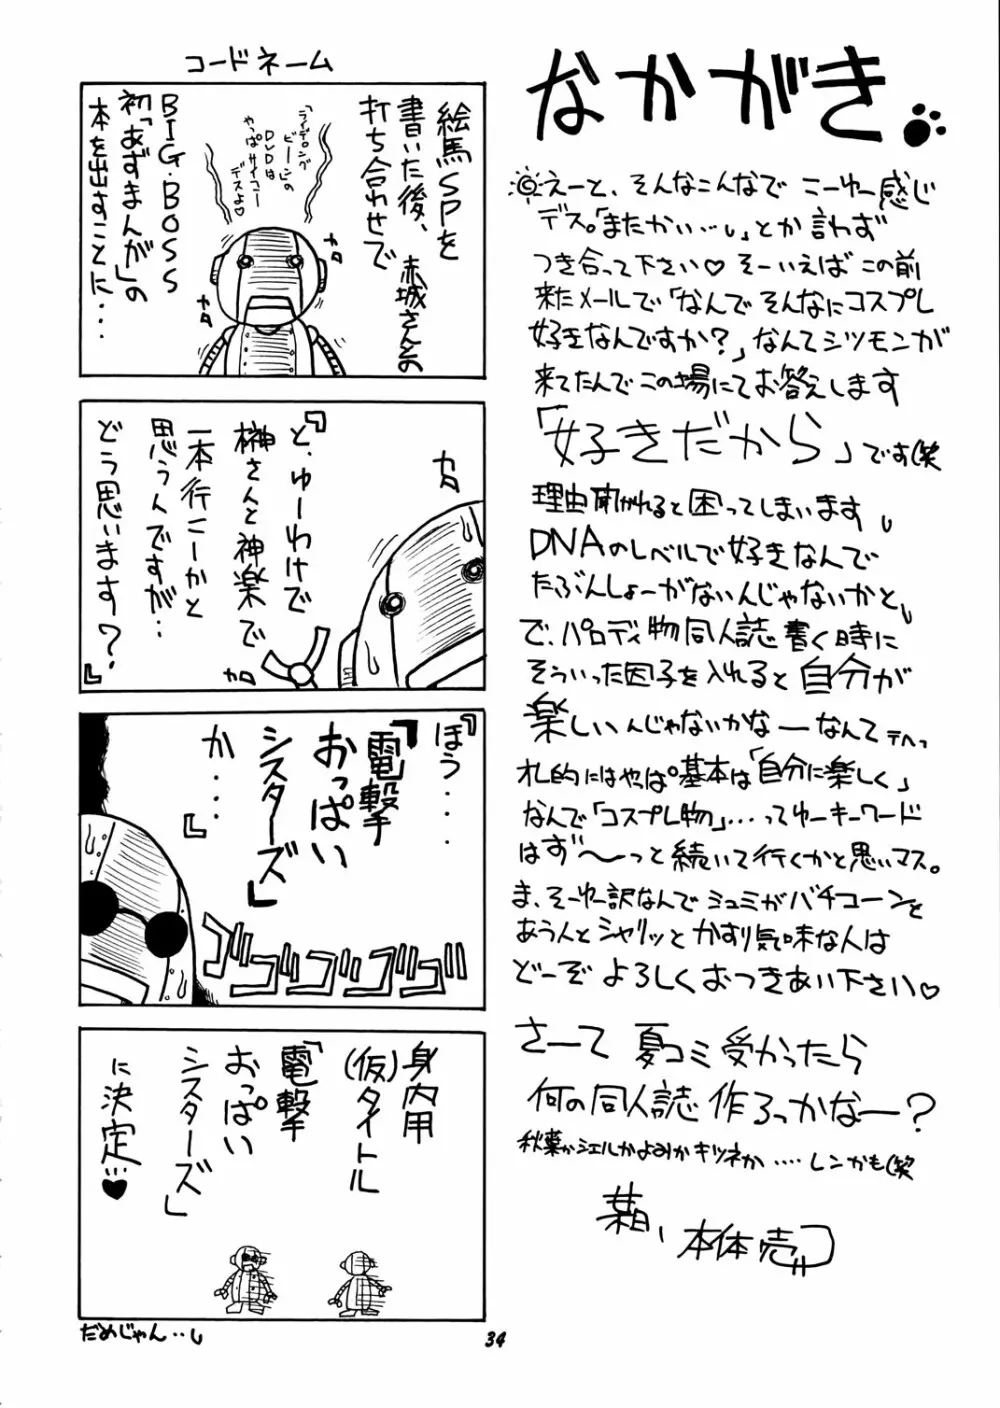 コードネーム
絵馬SPを
書いた後、赤城さんとの
打ち合わせで
「ライデロング
ビーン」の
DVDは
やっぱサイコー
デスよ♡
BIG・BOSS
初「あずまんが」の
本を出すことに・・・
カロ
カロ
『と、ゆーわけで
榊さんと神楽で
一本行こーかと
思うんですが…
どう思います?』
カロ
カロ
『ほう・・・
「電撃
おっぱい
シスターズ」
か・・・』
ゴゴゴゴゴ
身内用
(仮)タイトル
「電撃
おっぱい
シスターズ」
に決定…♥
だめじゃん…
なかがき
えーと、そんなこんなで こーゆー感じ
デス。「またかい…」とか言わず
つき合って下さい♡ そーいえばこの前
来たメールで「なんでそんなにコスプレ
好きなんですか?」なんてシツモンが
来てたんでこの場にてお答えします
「好きだから」です(笑
理由聞かれると困ってしまいます
DNAのレベルで好きなんで
たぶんしょーがないんじゃないかと
で、パロディ物同人誌書く時に
そういった因子を入れると自分が
楽しいんじゃないかなーなんて テヘっ
札的にはやっぱ基本は「自分に楽しく」
なんで「コスプレ物」…ってゆーキーワード
はず〜っと続いて行くかと思いマス。
ま、そーゆー訳なんでシュミがバチコーンと
あう人とシャリッとかすり気味な人は
どーぞ よろしくおつきあい下さい♡
さーて 夏コミ受かったら
何の同人誌作ろっかなー?
秋葉かシエルかよみかキツネか・・・・レンかも(笑
本体売
34